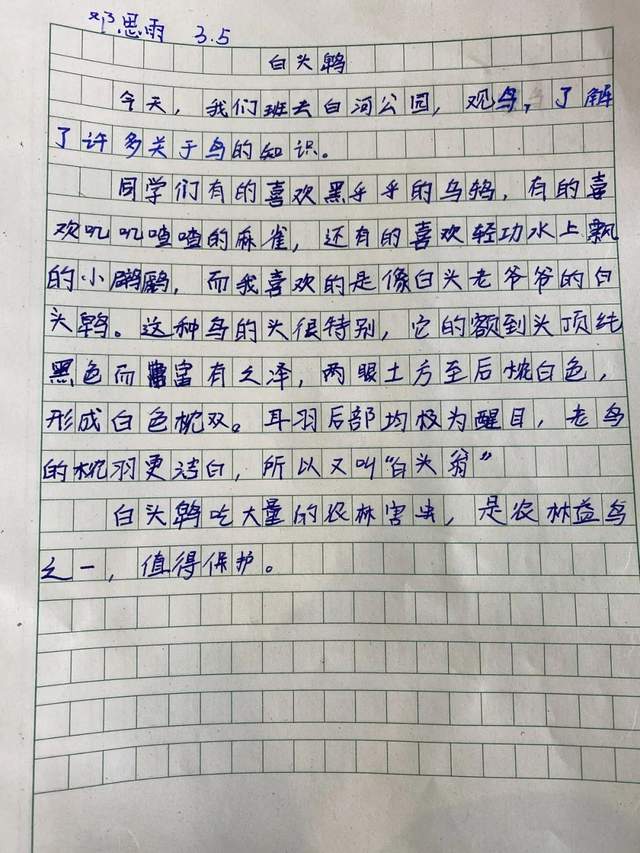 邓思雨 3.5
白头鹎
今天，我们班去白河公园，观鸟，了解
了许多关于鸟的知识。
同学们有的喜欢黑乎乎的乌鸫，有的喜
欢叽叽喳喳的麻雀，还有的喜欢轻功水上飘
的小鸊鷉，而我喜欢的是像白头老爷爷的白
头鹎。这种鸟的头很特别，它的额到头顶纯
黑色而富有之泽，两眼土方至后枕白色，
形成白色枕双。耳羽后部均极为醒目，老鸟
的枕羽更洁白，所以又叫“白头翁”
白头鹎吃大量的农林害虫，是农林益鸟
之一，值得保护。